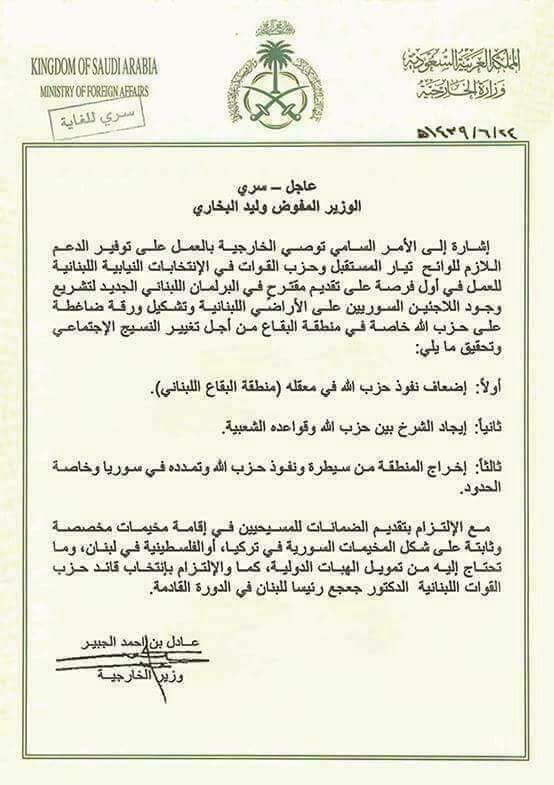 KINGDOM OF SAUDI ARABIA
MINISTRY OF FOREIGN AFFAIRS
سري للغاية
المملكة العربية السعودية
وزارة الخارجية
١٤٣٩/٦/٢٤هـ
عاجل – سري
الوزير المفوض وليد البخاري
إشارة إلى الأمر السامي توصي الخارجية بالعمل على توفير الدعم
اللازم للوائح تيار المستقبل وحزب القوات في الإنتخابات النيابية اللبنانية
للعمل في أول فرصة على تقديم مقترح في البرلمان اللبناني الجديد لتشريع
وجود اللاجئين السوريين على الأراضي اللبنانية وتشكيل ورقة ضاغطة
على حزب الله خاصة في منطقة البقاع من أجل تغيير النسيج الإجتماعي
وتحقيق ما يلي:
أولاً: إضعاف نفوذ حزب الله في معقله (منطقة البقاع اللبناني).
ثانياً: إيجاد الشرخ بين حزب الله وقواعده الشعبية.
ثالثاً: إخراج المنطقة من سيطرة ونفوذ حزب الله وتمدده في سوريا وخاصة
الحدود.
مع الإلتزام بتقديم الضمانات للمسيحيين في إقامة مخيمات مخصصة
وثابتة على شكل المخيمات السورية في تركيا، أوالفلسطينية في لبنان، وما
تحتاج إليه من تمويل الهبات الدولية، كما والإلتزام بإنتخاب قائد حزب
القوات اللبنانية الدكتور جعجع رئيسا للبنان في الدورة القادمة.
عادل بن احمد الجبير
وزير الخارجية